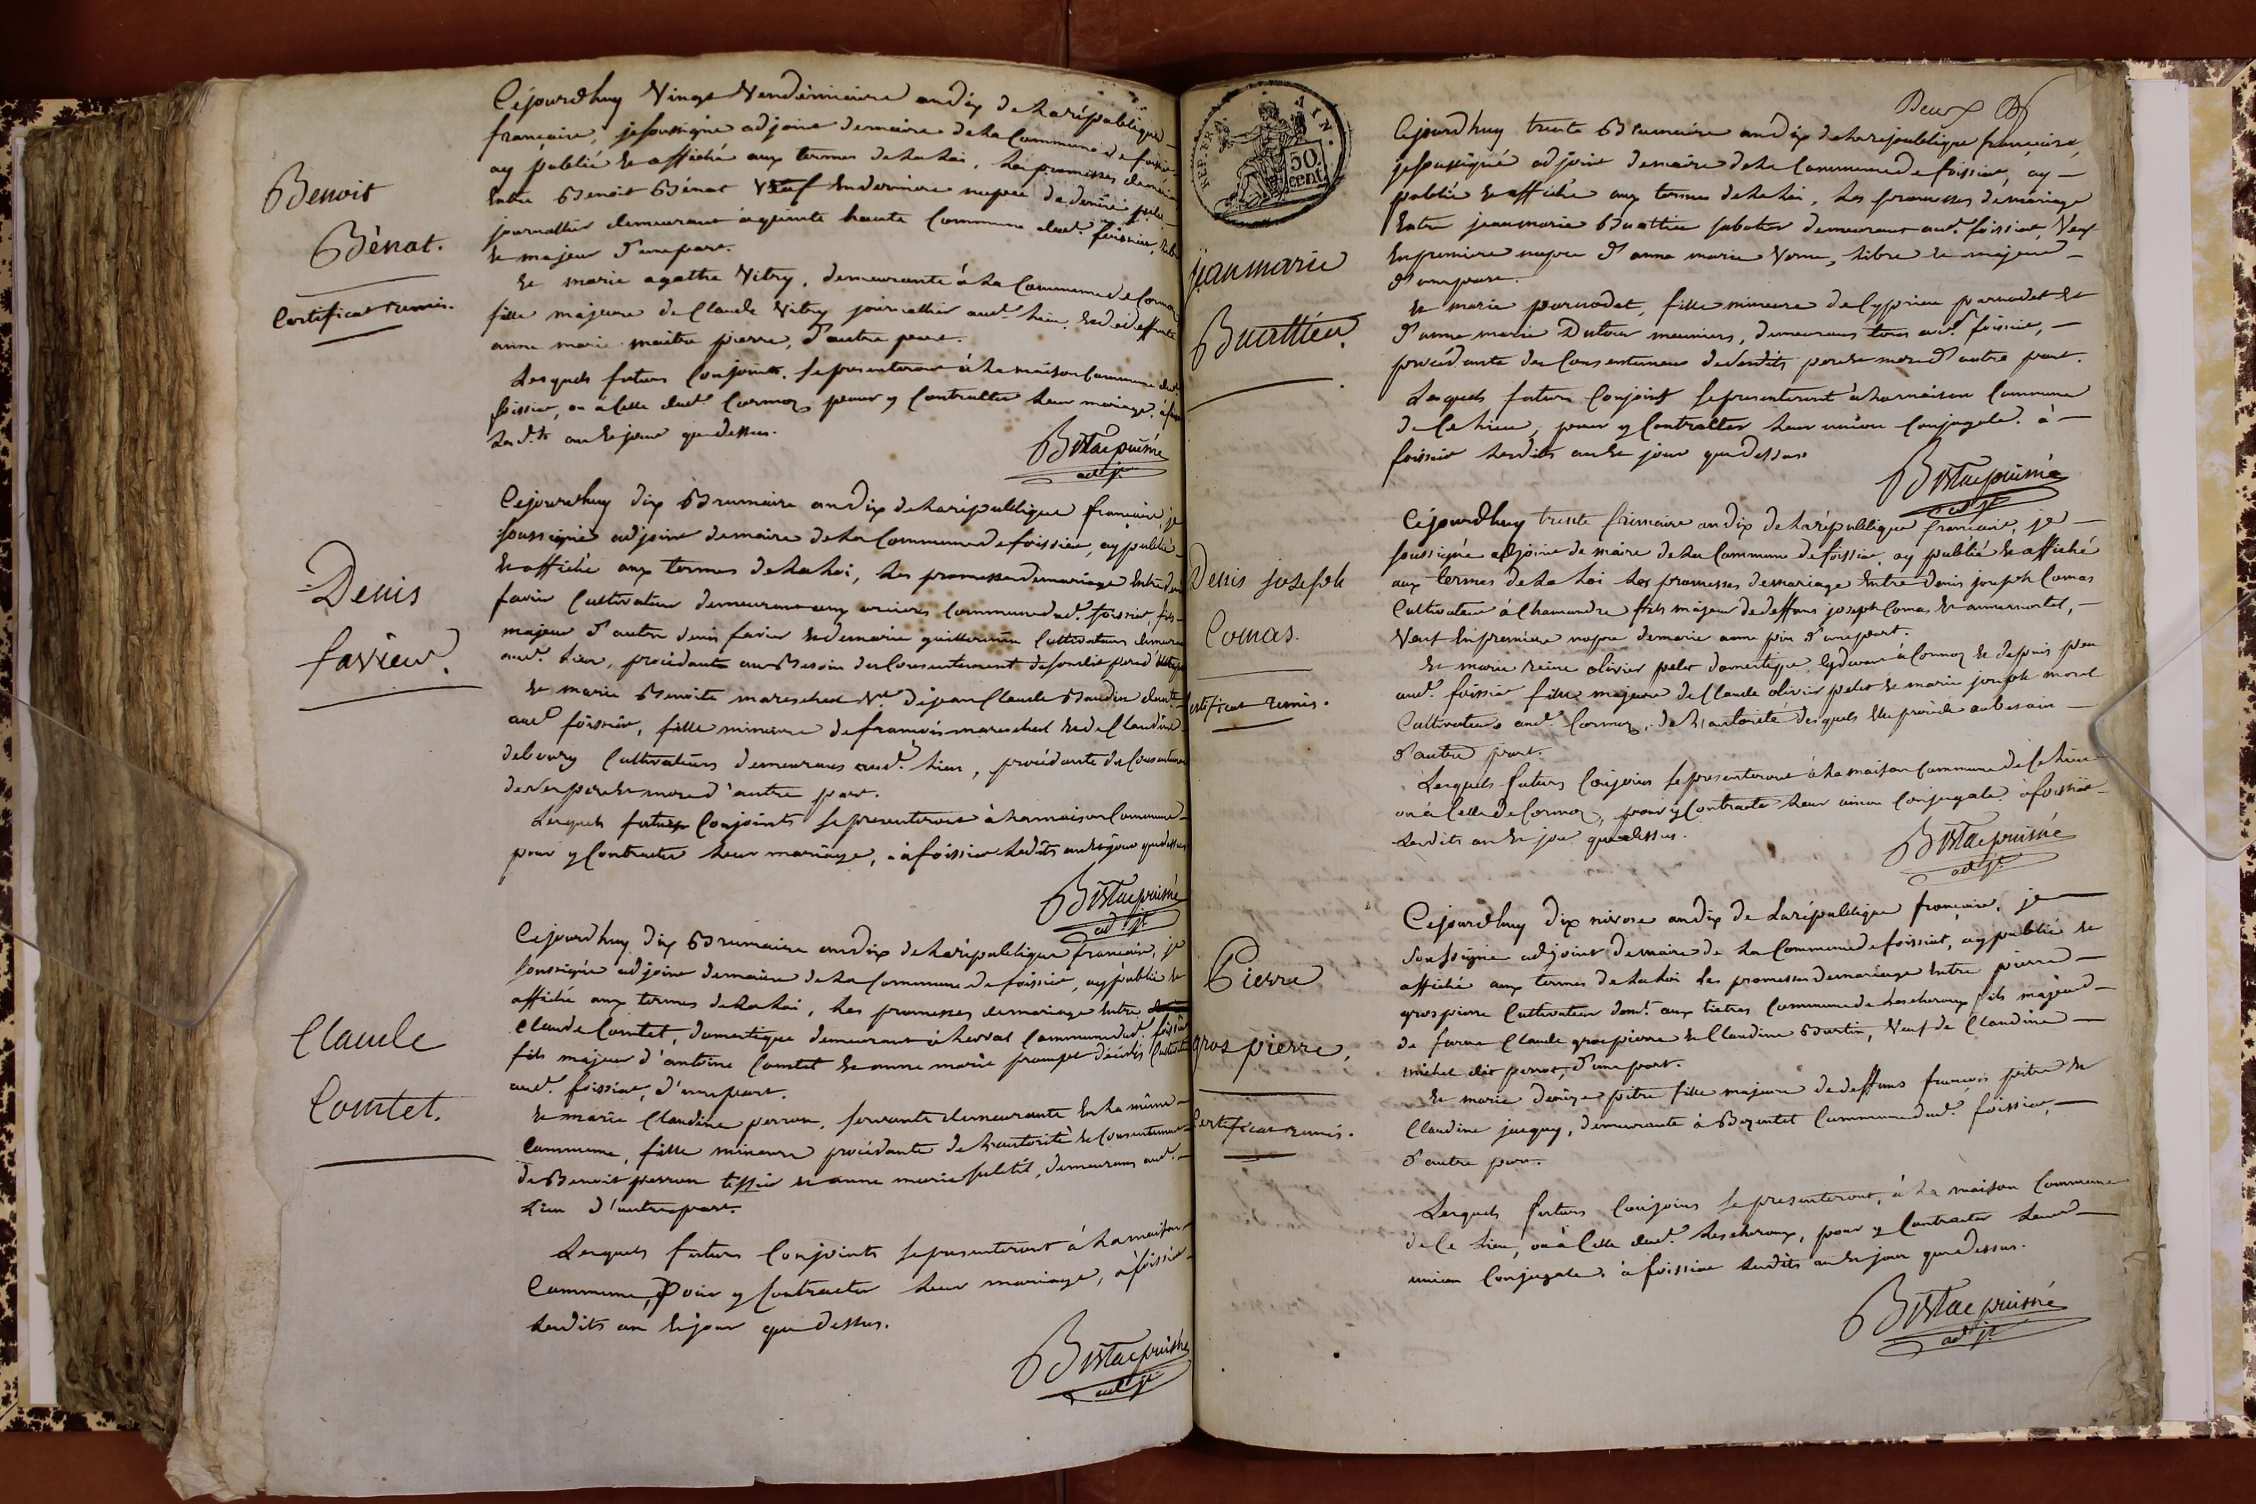 Benoit
Bénat.
Certificat remis.
Cejourdhuy Vingt Vendémiaire an dix de la république
française, je soussigné adjoint de maire de la Commune de foissia
ay publié et affiché aux termes de la loi, les promesses de
Entre Benoit Bénat Veuf en derniere nopce de denise
journallier demeurant à gerinte haute Commune dud. foissiat,
et majeur d'une part.
Et marie agathe Vitry, demeurante à la Commune de Cormoz
fille majeure de Claude Vitry journallier aud. lieu, et de deffunte
anne marie maitre pierre, d'autre part.
Lesquels futurs Conjoints se presenteront à la maison Commune dud.
foissiat, ou à Celle dud. Cormoz pour y Contracter leur mariage, à
Les d. ts an et jour que dessus.
adjt
Denis
favier.
Cejourdhuy dix Brumaire an dix de la république française, je
soussigné adjoint de maire de la Commune de foissiat, ay publié
et affiché aux termes de la loi, les promesses de mariage Entre denis
favier Cultivateur demeurant aux Commune dud. foissiat, fils
majeur d'autre denis favier et de marie guillermin Cultivateurs
aud. lieu, procédante au Besoin du Consentement de
Et marie Benoite mareschal Ve. de jean Claude Baudin demte
aud. foissiat, fille mineure de francois mareschal et de Claudine
debourg Cultivateurs demeurans aud. lieu, procédante du Consentement
de ses pere et mere d'autre part.
Lesquels futurs Conjoints se presenteront à la maison Commune
pour y Contracter leur mariage, à foissiat les dits an et jour que dessus
adjt
Claude
Comtet.
Cejourdhuy dix Brumaire an dix de la république française, je
soussigné adjoint de maire de la Commune de foissiat, ay publié et
affiché aux termes de la loi, les promesses de mariage Entre
Claude Comtet, domestique demeurant à Commune dud. foissiat
fils majeur d'antoine Comtet et anne marie prompt décédés
aud. foissiat, d'une part.
Et marie Claudine perron, servante demeurante En la même
Commune, fille mineure procédante de l'autorité et Consentement
de Benoit perron tessier et anne marie demeurans aud.
Lieu d'autre part.
Lesquels futurs Conjoints se presenteront à la maison
Commune, Pour y Contracter leur mariage, à foissiat
Lesdits an et jour que dessus.
adjt
REP. FRA. AIN.
50.
cent.
Deux
jean marie
Buattier.
Cejourdhuy trente Brumaire an dix de la republique française,
je soussigné adjoint de maire de la Commune de foissiat, ay
publié et affiché aux termes de la loi, les promesses de mariage
Entre jean marie Buattier sabotier demeurant aud. foissiat, Veuf
En premiere nopce d'anne marie Verne, libre et majeur
d'une part.
Et marie parnodet, fille mineure de Cyprien parnodet et
d'anne marie Dutour meuniers, demeurans tous aud. foissiat,
procédante du Consentement de sesdits pere et mere d'autre part.
Lesquels futurs Conjoint se presenteront à la maison Commune
de Ce lieu, pour y Contracter leur union Conjugale à
foissiat lesdits an et jour que dessus
adjt
Denis joseph
Comas.
Certificat remis.
Cejourdhuy trente frimaire an dix de la république française, je
soussigné adjoint de maire de la Commune de foissiat, ay publié et affiché
aux termes de la loi les promesses de mariage Entre denis joseph Comas
Cultivateur à Chamandre fils majeur de deffuns joseph Comas et anne
Veuf En premiere nopce de marie anne d'une part.
Et marie reine olivier pelet domestique Cydevant à Cormoz et depuis peu
aud. foissiat fille majeure de Claude olivier pelet et marie joseph morel
Cultivateurs aud. Cormoz, de l'autorité desquels Elle procéde au besoin
d'autre part.
Lesquels futurs Conjoins se presenteront à la maison Commune de Ce lieu
ou à Celle de Cormoz, pour y Contracter leur union Conjugale à foissiat
Lesdits an et jour que dessus.
adjt
Pierre
gros pierre,
Certificat remis.
Cejourdhuy dix nivose an dix de la république française, je
Soussigné adjoint de maire de la Commune de foissiat, ay publié et
affiché aux termes de la loi les promesses de mariage Entre pierre
gros pierre Cultivateur demt. aux tietres Commune de Lescheroux fils majeur
de furent Claude gros pierre et Claudine Burtin, Veuf de Claudine
michel dit perrot, d'une part.
Et marie denize pitre fille majeure de deffuns francois pitre et
Claudine jacquy, demeurante à Bezentet Commune dud. foissiat,
d'autre part.
Lesquels futurs Conjoins se presenteront, à la maison Commune
de Ce lieu, ou à Celle dud. Lescheroux, pour y Contracter leur
union Conjugale à foissiat lesdits an et jour que dessus.
adjt